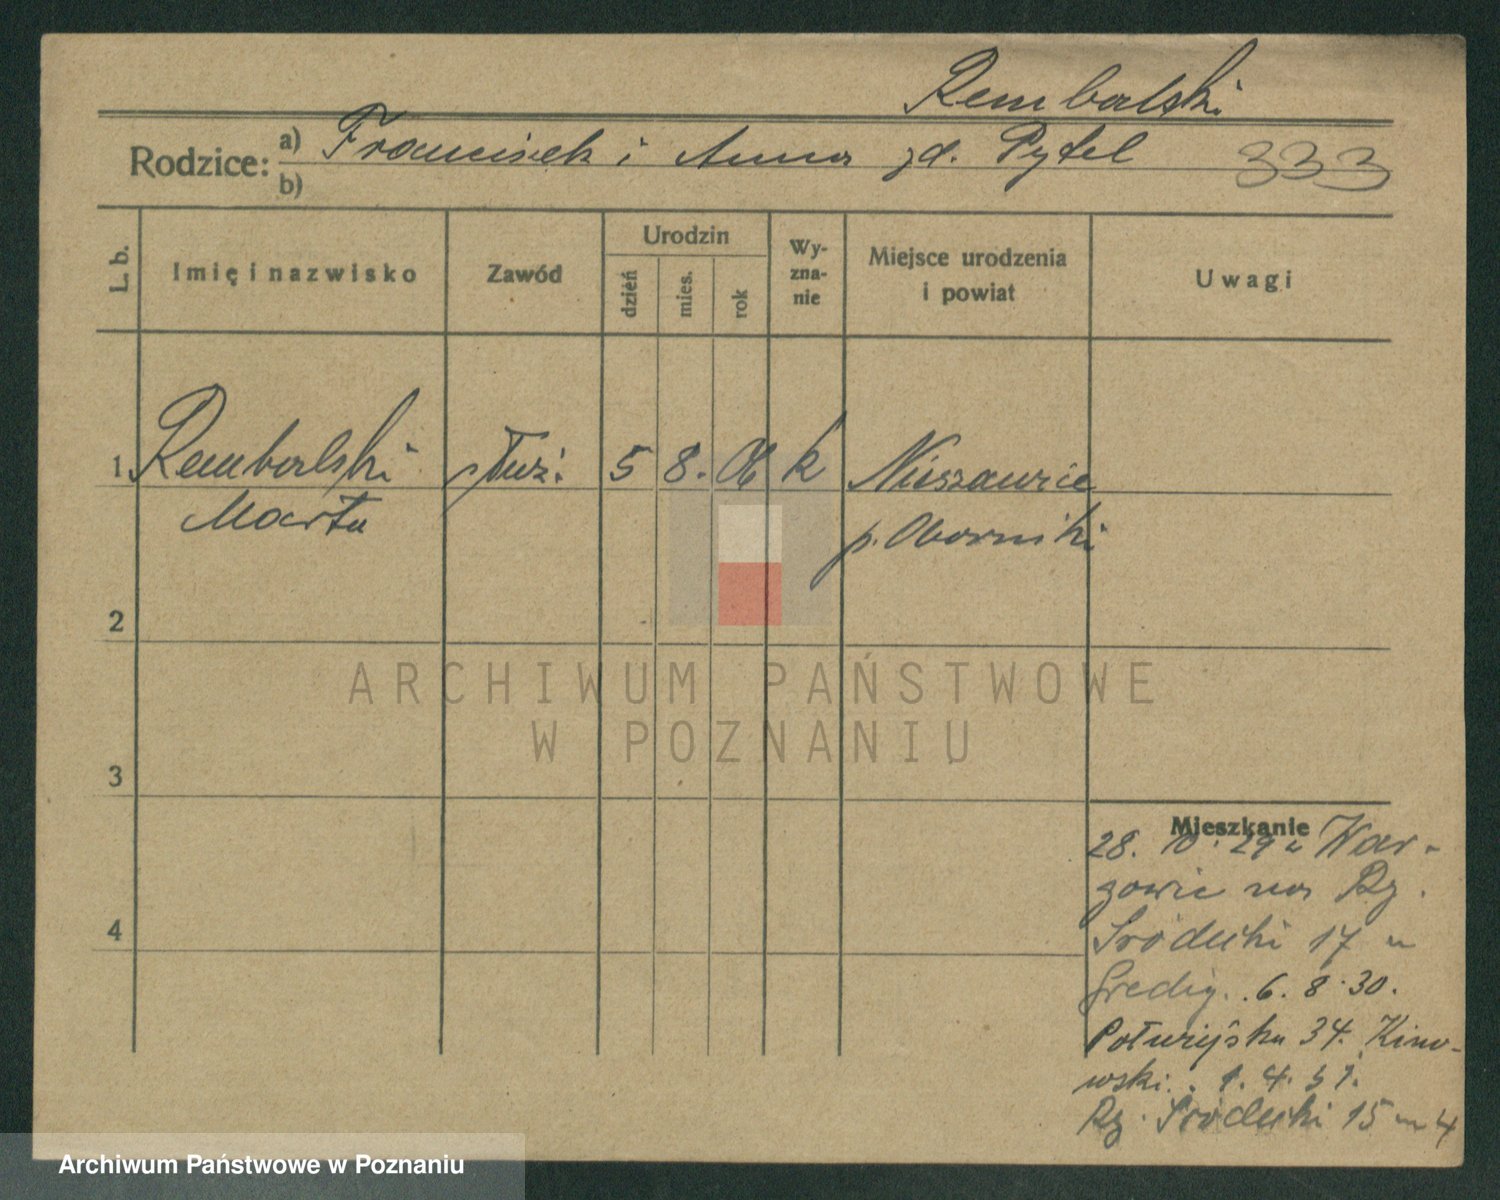 Rembalski
Rodzice: a) Franciszek i Anna zd. Pytel 333
b)
L. b.
Imię i nazwisko
Zawód
Urodzin
dzień
mies.
rok
Wy-
zna-
nie
Miejsce urodzenia
i powiat
Uwagi
1. Rembalski służ. 5 8. 06 k Nieszawice
Marta p. Oborniki
2
3
4
ARCHIWUM PAŃSTWOWE
W POZNANIU
Mieszkanie
28. 10. 29 z War-
gowic na Ry.
Śródecki 17 u
6. 8. 30.
34.
wski. 1. 4. 31.
Ry. Śródecki 15 m 4
Archiwum Państwowe w Poznaniu